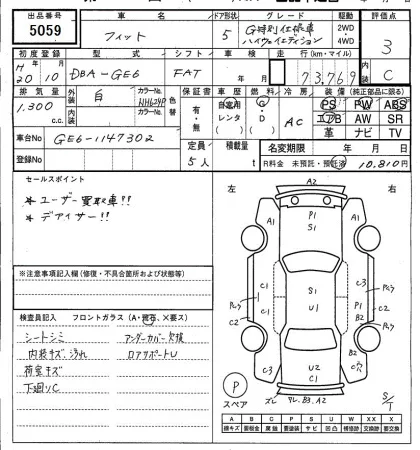 出品番号 車名 ドア形状 グレード 駆動 評価点
5059 フィット 5 G特別仕様車 ハイウェイエディション 2WD 4WD 3
初度登録 型式 シフト 車検 走行(km・マイル) 内装
H20 10 DBA-GE6 FAT 年 月 73,769 C
排気量 外装色 カラーNo. 色替 保証書 車歴 燃料 冷房 装備(純正部品に限る)
1,300 c.c. 白 NH624P 有・無 自家用 レンタ G・D AC PS PW ABS
内装 カラーNo. エアB AW SR
革 ナビ TV
車台No GE6-1147302 定員 積載量 名変期限 年 月 日
登録No 5人 t R料金 未預託・預託済 10,810円
セールスポイント
* ユーザー買取車!!
* デアイサー!!
※注意事項記入欄(修復・不具合箇所および状態等)
検査員記入欄 フロントガラス(A・飛石、×要ス)
シートシミ アンダーカバー欠損
内装キズ、汚れ ロアサポートU
荷室キズ
下廻りC
左 右
A2
P1
S1
C1 C3
Pレク C2 C1 S1 U1 P1 Pレク C2
B2
C3 U2 C1 C2
P スペア
ズレ B3 A2 S/T
A B C P S U W X XX
線キズ 要板金 腐蝕 要塗装 サビ 凹凸 補修跡 要交換 交換済